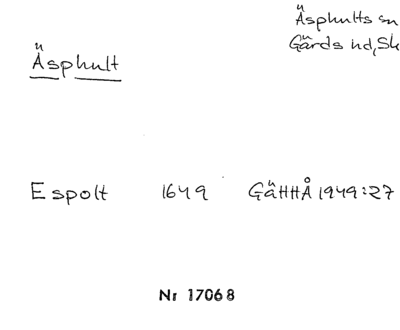 Äsphults sn
Gärds hd, Sk
Äsphult
Espolt 1649 GäHHÅ 1949:27
Nr 17068